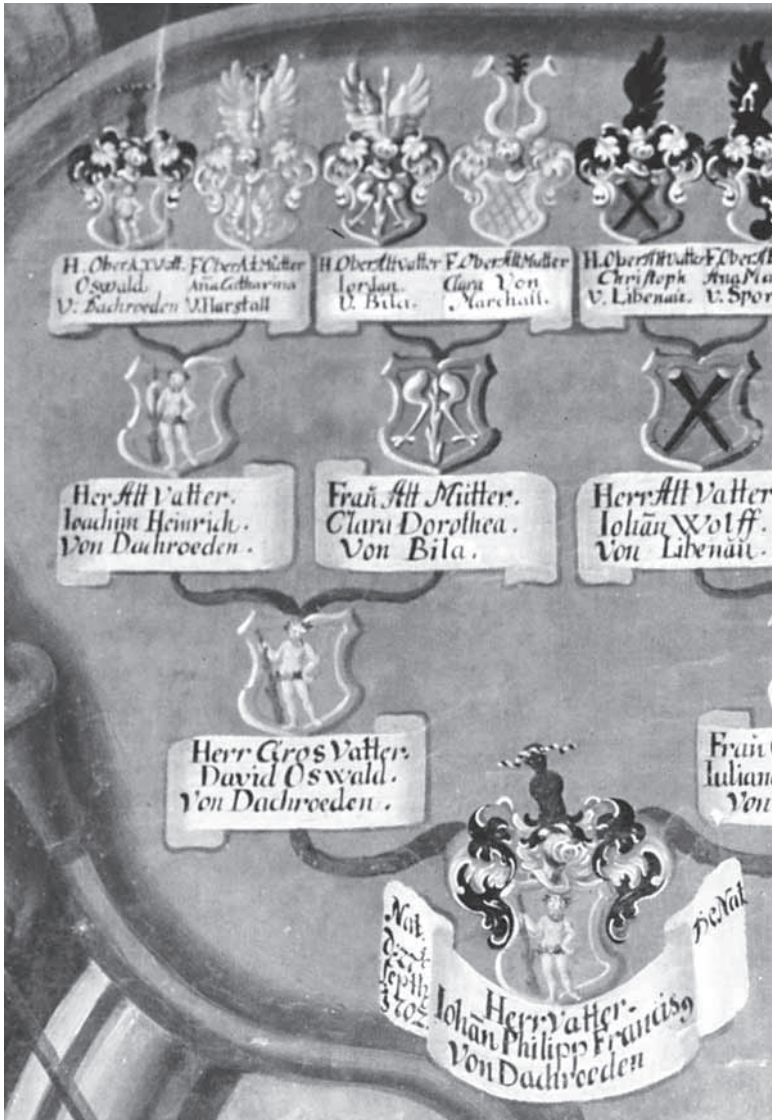 H. Ober Alt Vatt.
Oswald
V. Dachroeden
F. Ober Alt Mütter
Aña Catharina
V. Harstall
H. Ober Alt Vatter
Iordan.
V. Bila.
F. Ober Alt Mutter
Clara Von
Marchall.
H. Ober Alt Vatter
Christoph
V. Libenaú.
F. Ober
V. Spor
Her Alt Vatter.
Ioachim Heinrich.
Von Dachroeden.
Frañ Alt Mütter.
Clara Dorothea.
Von Bila.
Herr Alt Vatter
Iohañ Wolff.
Von Libenaú.
Herr Gros Vatter.
David Oswald.
Von Dachroeden.
Frañ
Iulian
Von
Nat.
DeNat
Herr Vatter.
Iohañ Philipp Francis9
Von Dachroeden